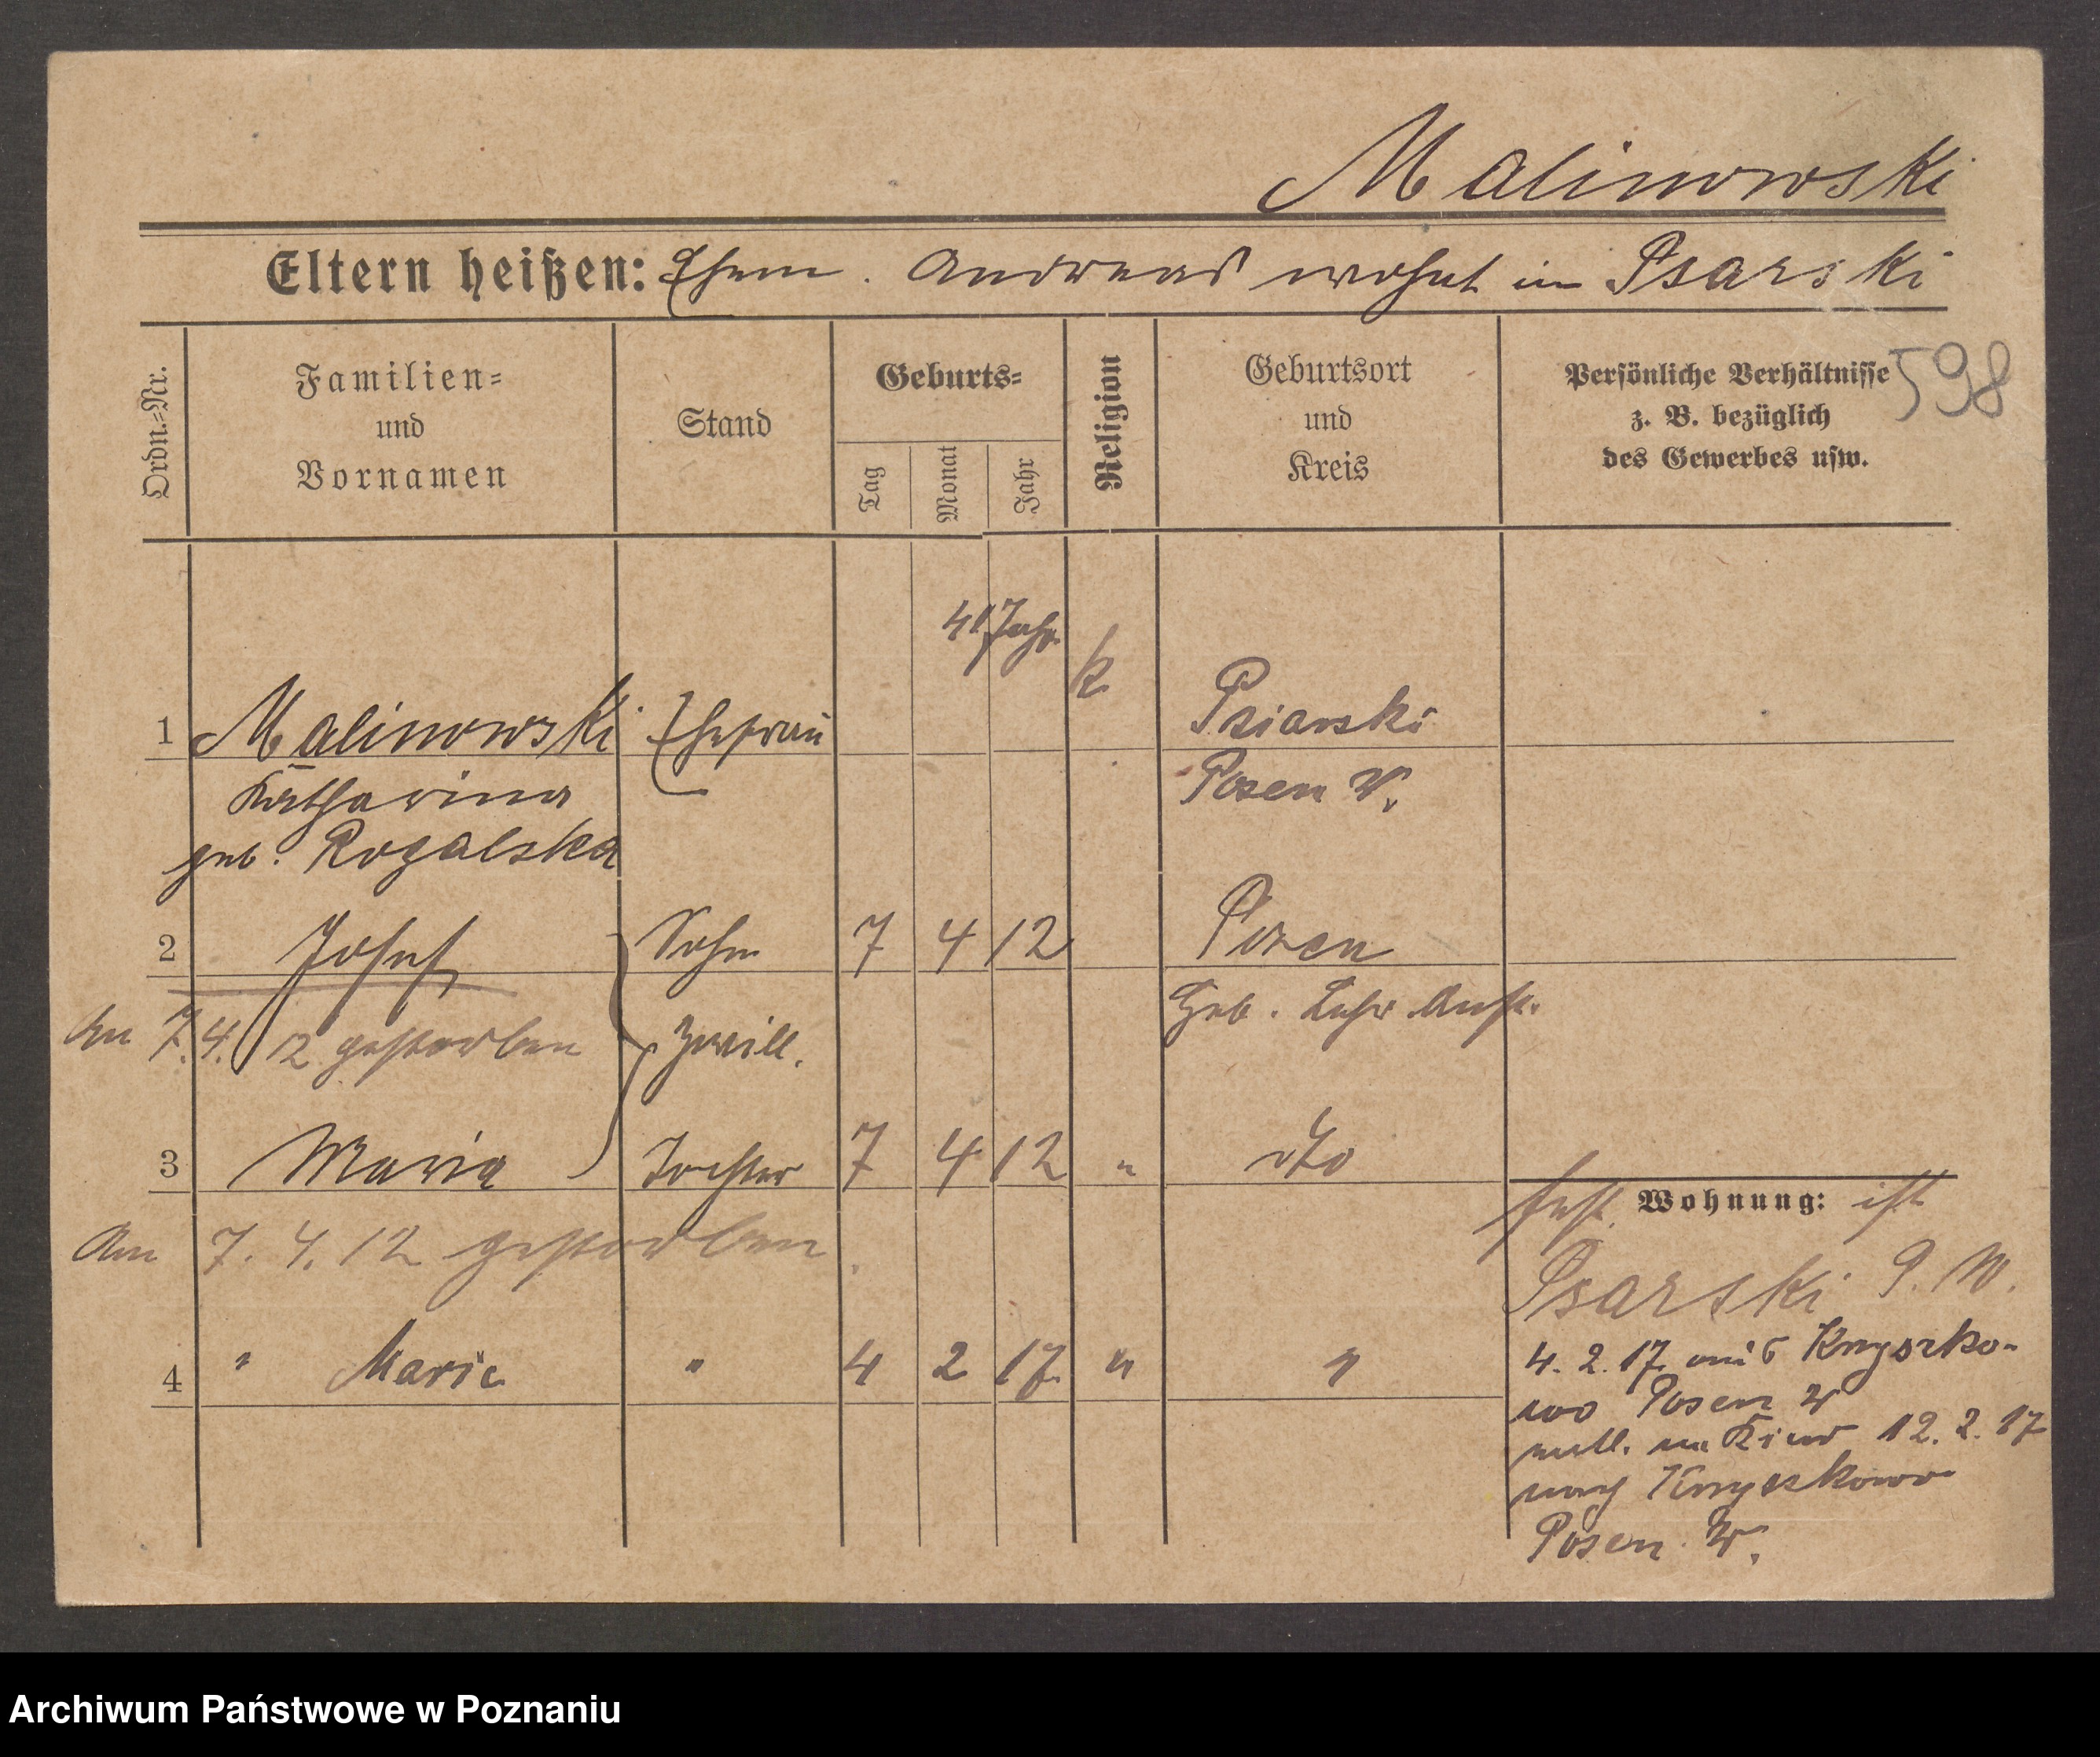 Malinowski
Eltern heißen: Ehem. Andreas wohnt in Psarski
Ordn.=Nr.
Familien=
und
Vornamen
Stand
Geburts=
Tag
Monat
Jahr
Religion
Geburtsort
und
Kreis
Persönliche Verhältnisse
z. B. bezüglich
des Gewerbes usw.
598
41 Jahr
k
1 Malinowski Ehefrau Psiarski
Katharina Posen W.
geb. Rogalska
2 Josef Sohn 7 4 12 Posen
Geb. Lehr Anst.
Am 7. 4. 12 gestorben Zwill.
3 Maria Tochter 7 4 12 " dto
Am 7. 4. 12 gestorben
Wohnung: ist
Psarski P. W.
4 " Marie " 4 2 17 " "
4. 2. 17 aus Knyszko-
wo Posen W
Kind 12. 2. 17
nach Knyszkowo
Posen W.
Archiwum Państwowe w Poznaniu